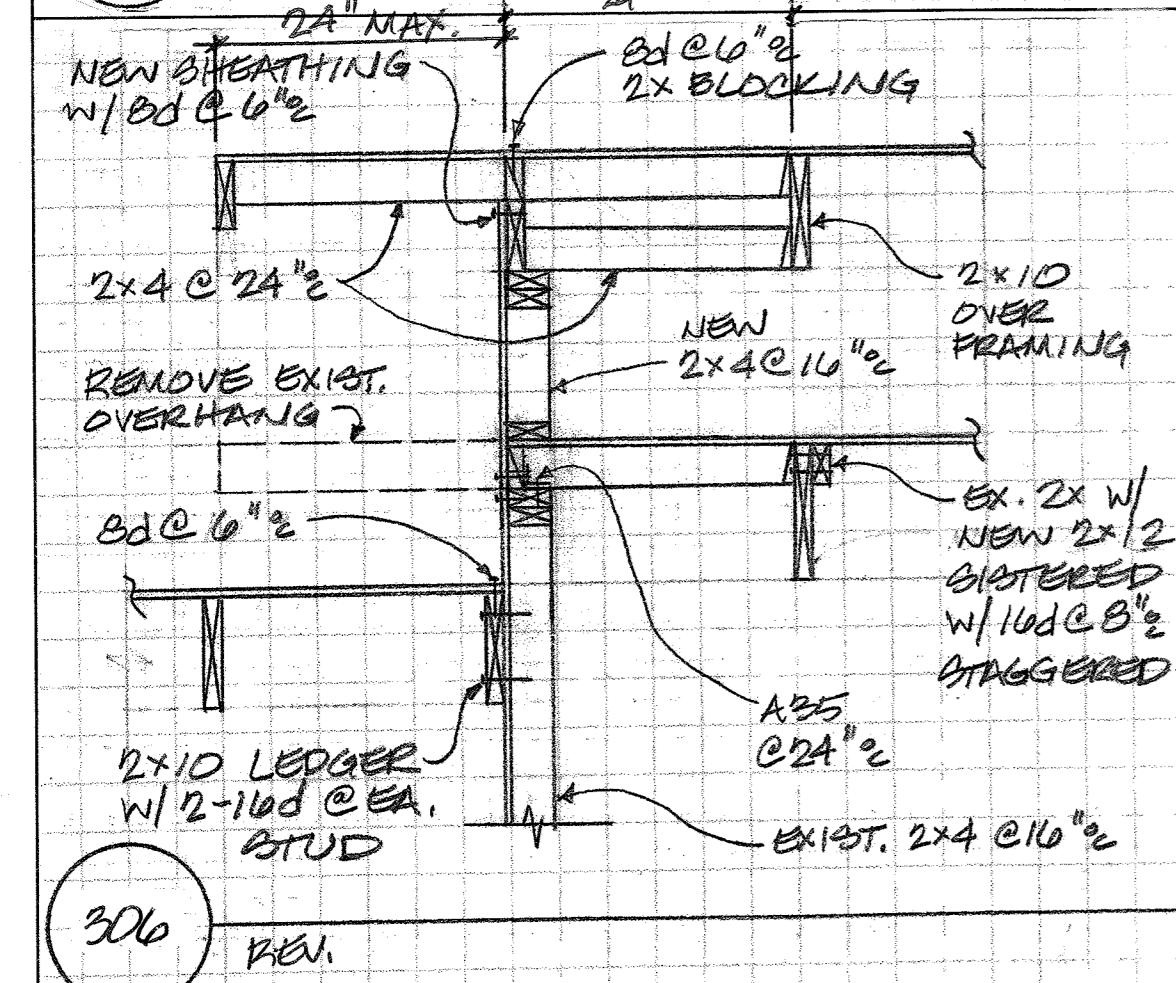 24" MAX.
NEW SHEATHING
W/ 8d @ 6" o.c.
8d @ 6" o.c.
2X BLOCKING
2x4 @ 24" o.c.
2x10
OVER
FRAMING
NEW
2x4 @ 16" o.c.
REMOVE EXIST.
OVERHANG
8d @ 6" o.c.
EX. 2X W/
NEW 2x12
SISTERED
W/ 16d @ 8" o.c.
STAGGERED
A35
@ 24" o.c.
2x10 LEDGER
W/ 2-16d @ EA.
STUD
EXIST. 2x4 @ 16" o.c.
306
REV.